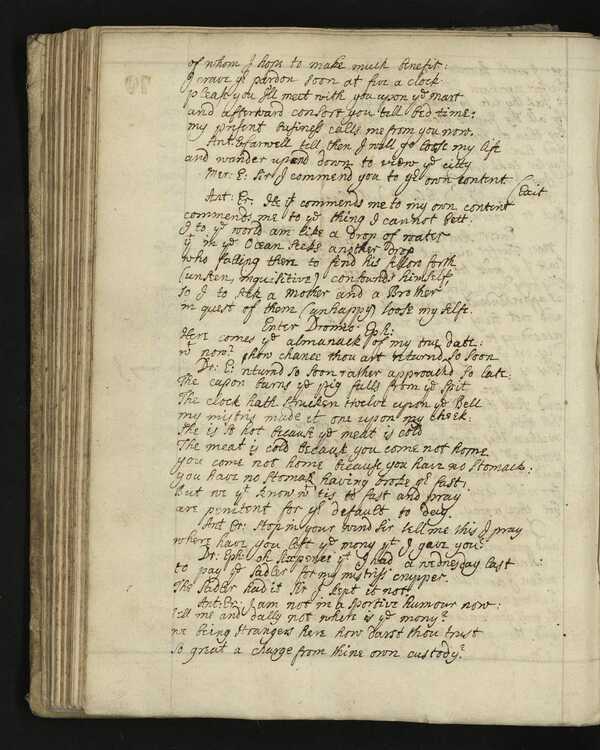 of whom I hope to make much benefit:
I crave yr pardon soon at five a clock
please you Ile meet with you upon ye mart
and afterward consort you till bed time:
my present busines calls me from you now.
Ant: E: farwell till then I will go loose my self
and wander up and down to view ye citty
Mer: E: Sir I commend you to yr own content
Exit
Ant: Er: He yt commends me to my own content
commends me to ye thing I cannot gett:
I to ye world am like a drop of water
yt in ye Ocean seeks another drop
who falling there to find his fellow forth
(unseen, inquisitive) confounds himself;
so I to seek a mother and a Brother
in quest of them (unhappy) loose my selfe.
Enter Dromio: Eph:
Here comes ye almanack of my true date:
w now? how chance thou art returnd so soon
Dr: E: returnd so soon rather approachd so late:
The capon burns ye pig falls from ye spit
The clock hath strucken twelve upon ye Bell
my mistris made it one upon my cheek:
she is so hot because ye meat is cold
The meat is cold because you come not home
you come not home because you have no stomack:
you have no stomak having broke yr fast:
But we yt know wt tis to fast and pray
are penitent for yr default to day.
Ant Er: stop in your wind sir tell me this I pray
where have you left ye mony yt I gave you?
Dr: Eph: oh sixpence yt I had a wednesday last
to pay ye sadler for my mistriss crupper.
The sadler had it Sir I kept it not
Ant: Er: I am not in a sportive humour now:
tell me and dally not where is ye mony?
we being strangers here how darst thou trust
so great a charge from thine own custody?